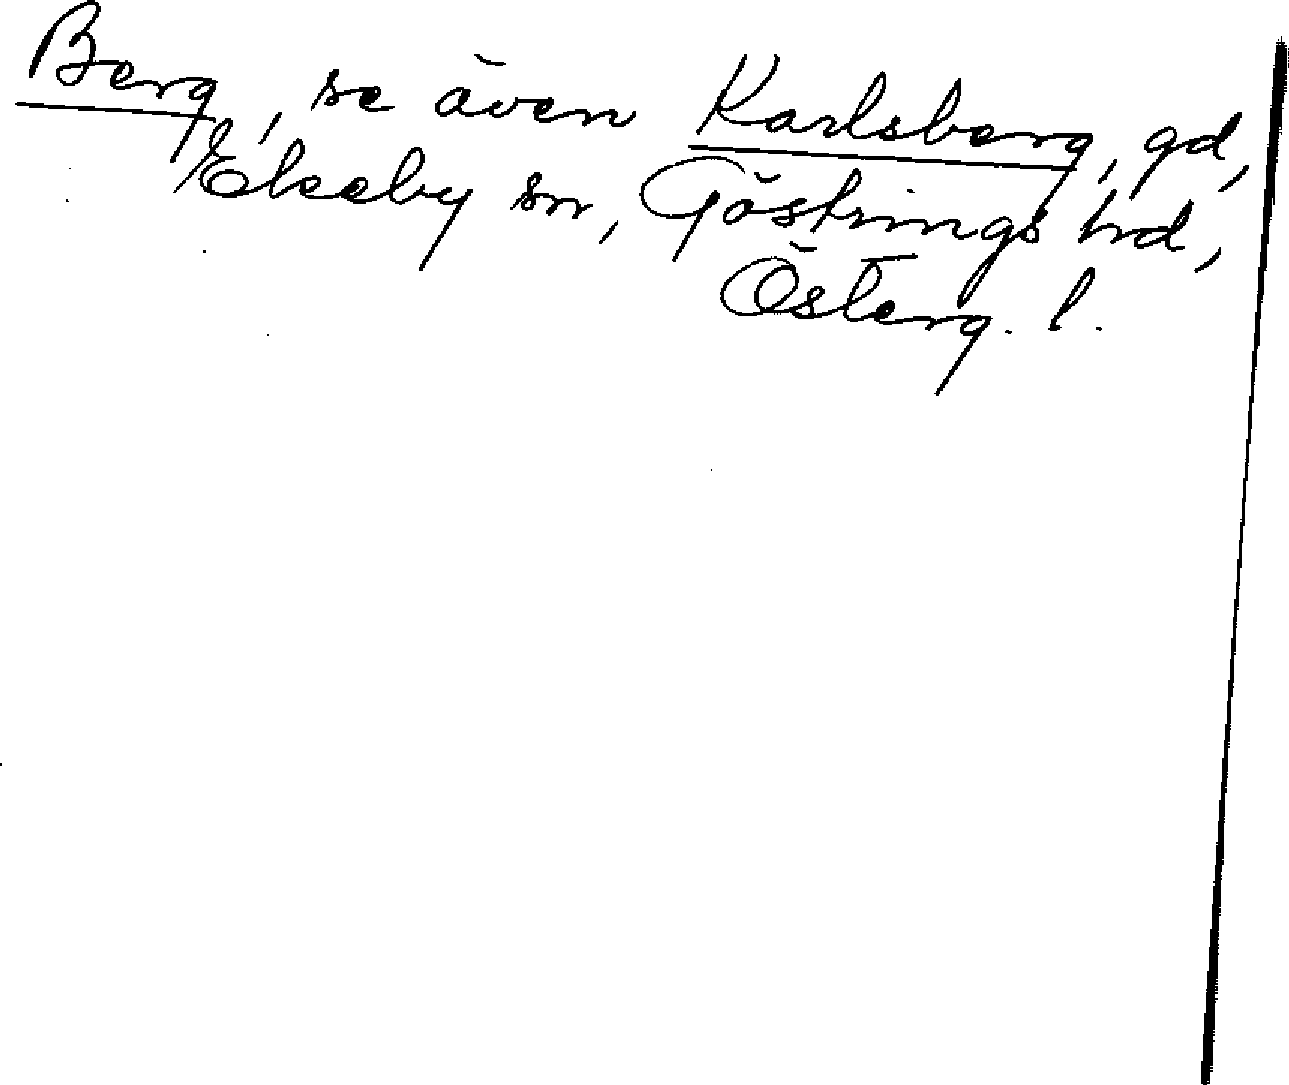 Berg, se även Karlsberg, gd,
Ekeby sn, Göstrings hd,
Österg. l.